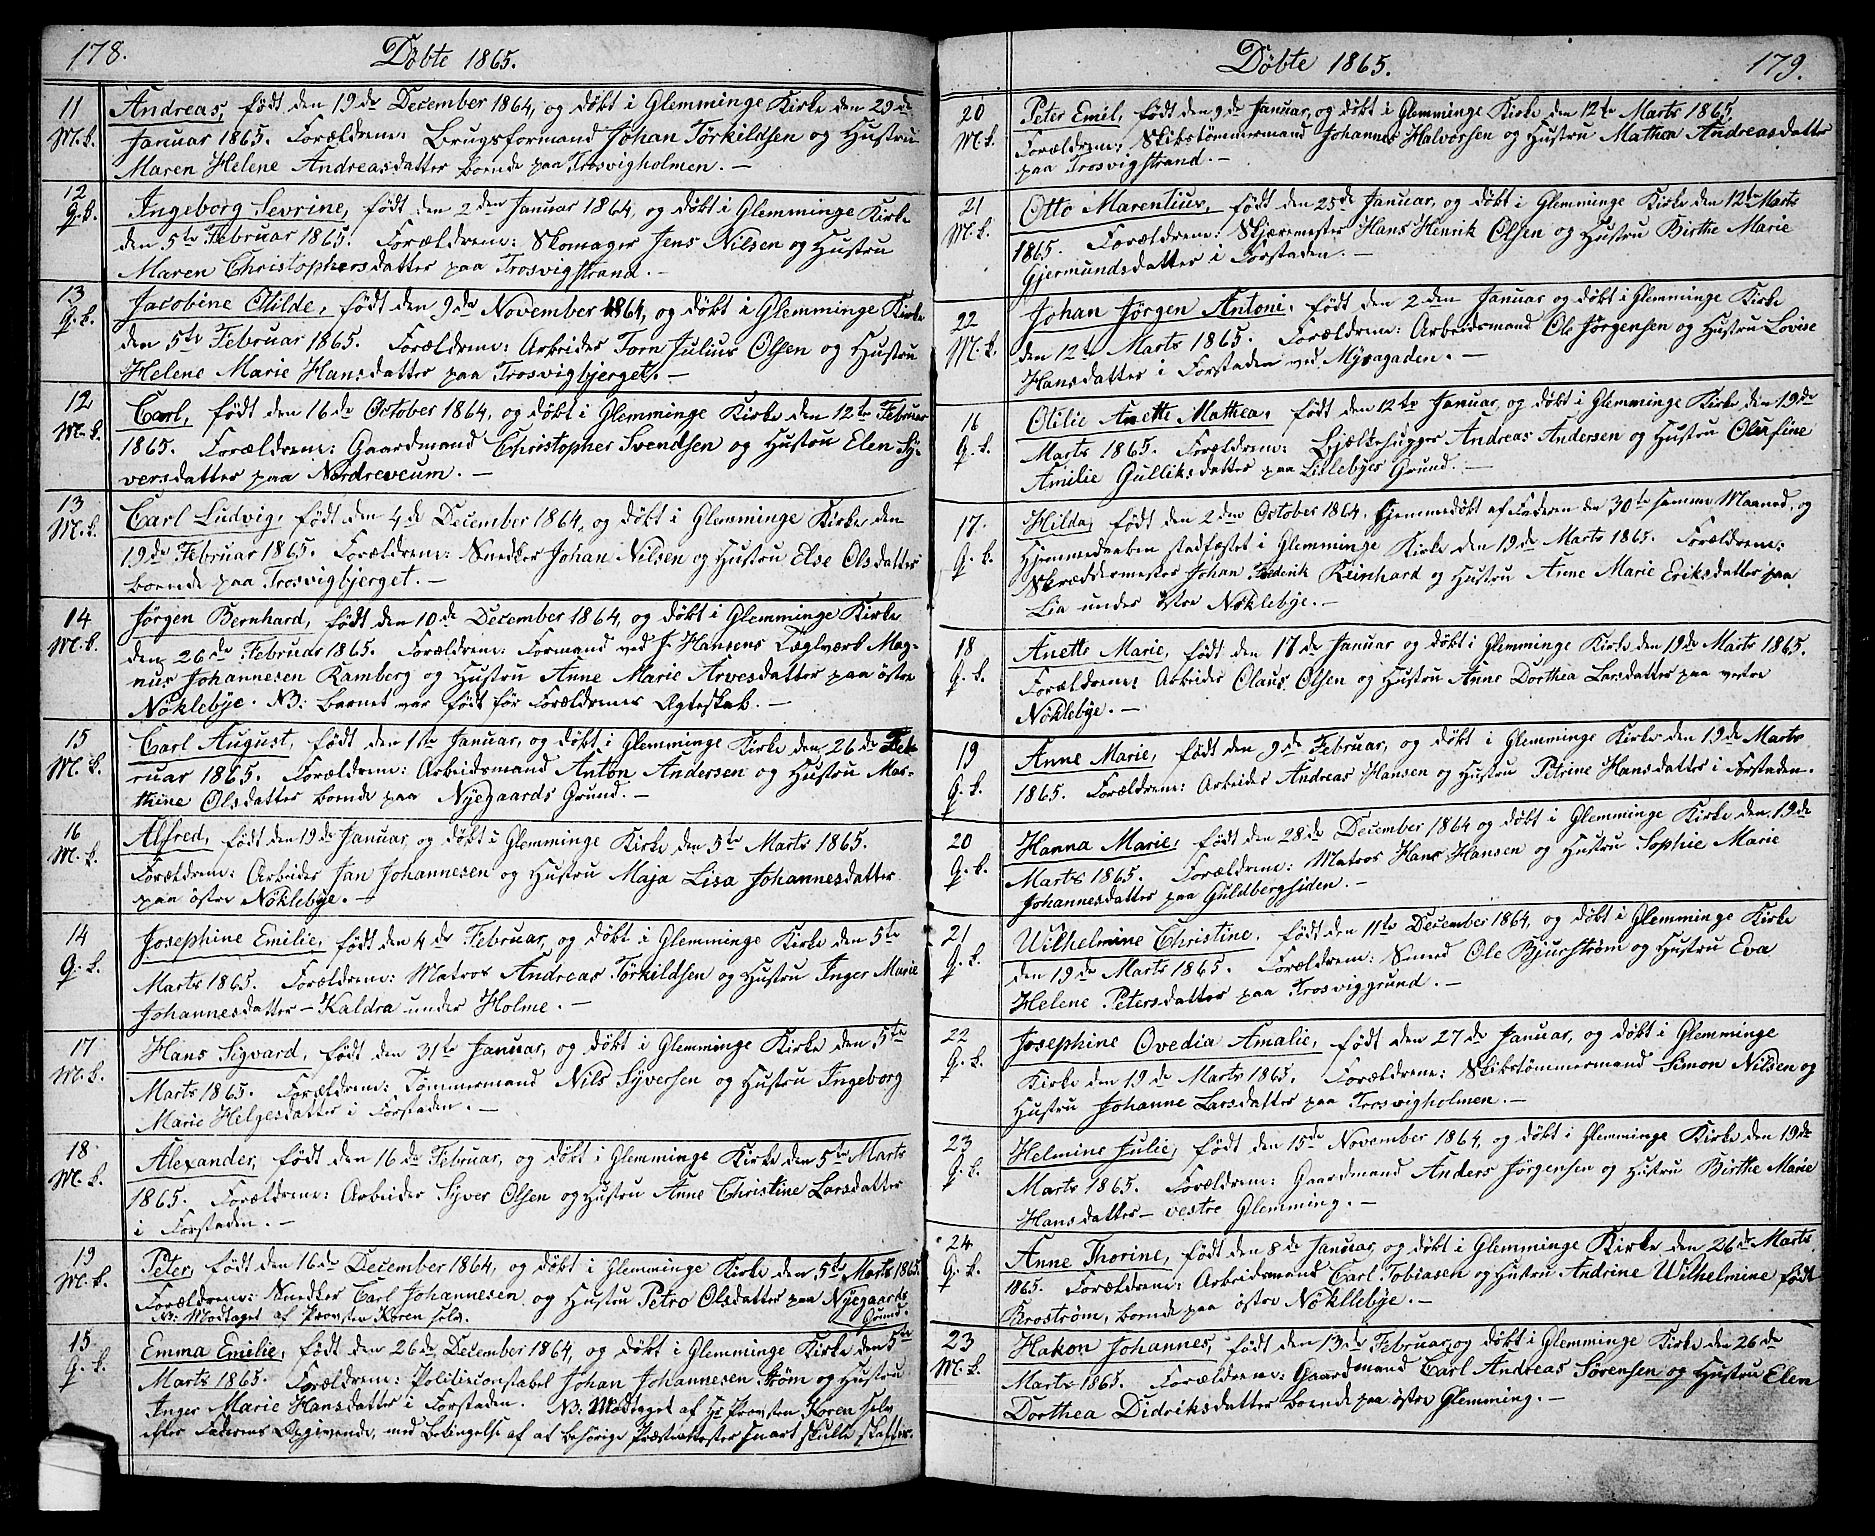 178.
Döbte 1865.
11
M.k.
Andreas, født den 19de December 1864, og døbt i Glemminge Kirke den 29de
Januar 1865. Forældrene: Brugsformand Johan Törkildsen og Hustru
Maren Helene Andreasdatter boende paa Trosvigholmen. —
12
Q.k.
Ingeborg Sevrine, født den 2den Januar 1864, og døbt i Glemminge Kirke
den 5te Februar 1865. Forældrene: Skomager Jens Nilsen og Hustru
Maren Christophersdatter paa Trosvigstrand. —
13
Q.k.
Jacobine Otilde, født den 9de November 1864, og døbt i Glemminge Kirke
den 5te Februar 1865. Forældrene: Arbeider Torn Julius Olsen og Hustru
Helene Marie Hansdatter paa Trosvigbjerget. —
12
M.k.
Carl, født den 16de October 1864, og døbt i Glemminge Kirke den 12te Februar
1865. Forældrene: Gaardmand Christopher Svendsen og Hustru Elen Sy-
versdatter paa Nordreveum. —
13
M.k.
Carl Ludvig, født den 4de December 1864, og døbt i Glemminge Kirke den
19de Februar 1865. Forældrene: Snedker Johan Nilsen og Hustru Else Olsdatter
boende paa Trosvigbjerget. —
14
M.k.
Jørgen Bernhard, født den 10de December 1864, og døbt i Glemminge Kirke
den 26de Februar 1865. Forældrene: Formand ved J. Hansens Teglværk Mag-
nus Johannesen Ramberg og Hustru Anne Marie Arvesdatter paa östre
Nöklebye. NB: barnet var født før Forældrenes Ægteskab. —
15
M.k.
Carl August, født den 1te Januar, og døbt i Glemminge Kirke den 26de Feb-
ruar 1865. Forældrene: Arbeidsmand Anton Andersen og Hustru Mar-
thine Olsdatter boende paa Nyegaards Grund. —
16
M.k.
Alfred, født den 19de Januar, og døbt i Glemminge Kirke den 5te Marts 1865.
Forældrene: Arbeider Jan Johannesen og Hustru Maja Lisa Johannesdatter
paa östre Nöklebye. —
14
Q.k.
Josephine Emilie, født den 4de Februar, og døbt i Glemminge Kirke den 5te
Marts 1865. Forældrene: Matros Andreas Törkildsen og Hustru Inger Marie
Johannesdatter — Kaldra under Holme. —
17
M.k.
Hans Sigvard, født den 31te Januar, og døbt i Glemminge Kirke den 5te
Marts 1865. Forældrene: Tømmermand Nils Syversen og Hustru Ingeborg
Marie Helgesdatter i Forstaden. —
18
M.k.
Alexander, født den 16de Februar, og døbt i Glemminge Kirke den 5te Marts
1865. Forældrene: Arbeider Syver Olsen og Hustru Anne Christine Larsdatter
i Forstaden. —
19
M.k.
Peter, født den 16de December 1864, og døbt i Glemminge Kirke den 5te Marts 1865.
Forældrene: Snedker Carl Johannesen og Hustru Petro Olsdatter paa Nyegaards
NB: Modtaget af Provsten Koren selv. Grund.
15
Q.k.
Emma Emilie, født den 26de December 1864, og døbt i Glemminge Kirke den 5te
Marts 1865. Forældrene: Politieconstabel Johan Johannesen Strøm og Hustru
Inger Marie Hansdatter i Forstaden. NB: Modtaget af Hr Provsten Koren selv
efter Faderens Opgivende, med Betingelse af at behörige Præsteattester snart skulle skaffes.
179.
Döbte 1865.
20
M.k.
Peter Emil, født den 9de Januar, og døbt i Glemminge Kirke den 12te Marts 1865.
Forældrene: Skibstømmermand Johannes Halvorsen og Hustru Mathea Andreasdatter
paa Trosvigstrand. —
21
M.k.
Otto Marentius, født den 25de Januar, og døbt i Glemminge Kirke den 12te Marts
1865. Forældrene: Skjæremester Hans Henrik Olsen og Hustru Birthe Marie
Gjermundsdatter i Forstaden. —
22
M.k.
Johan Jørgen Antoni, født den 2den Januar og døbt i Glemminge Kirke
den 12te Marts 1865. Forældrene: Arbeidsmand Ole Jørgensen og Hustru Lovise
Hansdatter i Forstaden ved Mysagaden. —
16
Q.k.
Otilie Anette Mathea, født den 12te Januar, og døbt i Glemminge Kirke den 19de
Marts 1865. Forældrene: Bjælkehugger Andreas Andersen og Hustru Olufine
Amilie Gulliksdatter paa Lillebyes Grund. —
17.
Q.k.
Hilda, født den 2den October 1864. Hjemmedøbt af Faderen den 30te samme Maaned, og
Hjemmedaaben stadfæstet i Glemminge Kirke den 19de Marts 1865. Forældrene:
Skræddermester Johan Frederik Reinhard og Hustru Anne Marie Eriksdatter paa
Lia under östre Nöklebye. —
18
Q.k.
Anette Marie, født den 17de Januar og døbt i Glemminge Kirke den 19de Marts 1865.
Forældrene: Arbeider Olaus Olsen og Hustru Anne Dorthea Larsdatter paa vestre
Nöklebye. —
19
Q.k.
Anne Marie, født den 9de Februar, og døbt i Glemminge Kirke den 19de Marts
1865. Forældrene: Arbeider Andreas Hansen og Hustru Petrine Hansdatter i Forstaden.
20
Q.k.
Hanna Marie, født den 28de December 1864 og døbt i Glemminge Kirke den 19de
Marts 1865. Forældrene: Matros Hans Hansen og Hustru Sophie Marie
Johannesdatter paa Guldbergsiden. —
21
Q.k.
Wilhelmine Christine, født den 11te December 1864, og døbt i Glemminge Kirke
den 19de Marts 1865. Forældrene: Smed Ole Bjurstrøm og Hustru Eva
Helene Petersdatter paa Trosviggrund. —
22
Q.k.
Josephine Ovedia Amalie, født den 27de Januar, og døbt i Glemminge
Kirke den 19de Marts 1865. Forældrene: Skibstømmermand Simon Nilsen og
Hustru Johanne Larsdatter paa Trosvigholmen. —
23
Q.k.
Helmine Julie, født den 15de November 1864, og døbt i Glemminge Kirke den 19de
Marts 1865. Forældrene: Gaardmand Anders Jørgensen og Hustru Birthe Marie
Hansdatter — vestre Glemming. —
24
Q.k.
Anne Thorine, født den 8de Januar, og døbt i Glemminge Kirke den 26de Marts
1865. Forældrene: Arbeidsmand Carl Tobiasen og Hustru Andrine Wilhelmine født
Brostrøm, boende paa östre Nökllebye. —
23
M.k.
Hakon Johannes, født den 13de Februar, og døbt i Glemminge Kirke den 26de
Marts 1865. Forældrene: Gaardmand Carl Andreas Sørensen og Hustru Elen
Dorthea Didriksdatter boende paa östre Glemming. —